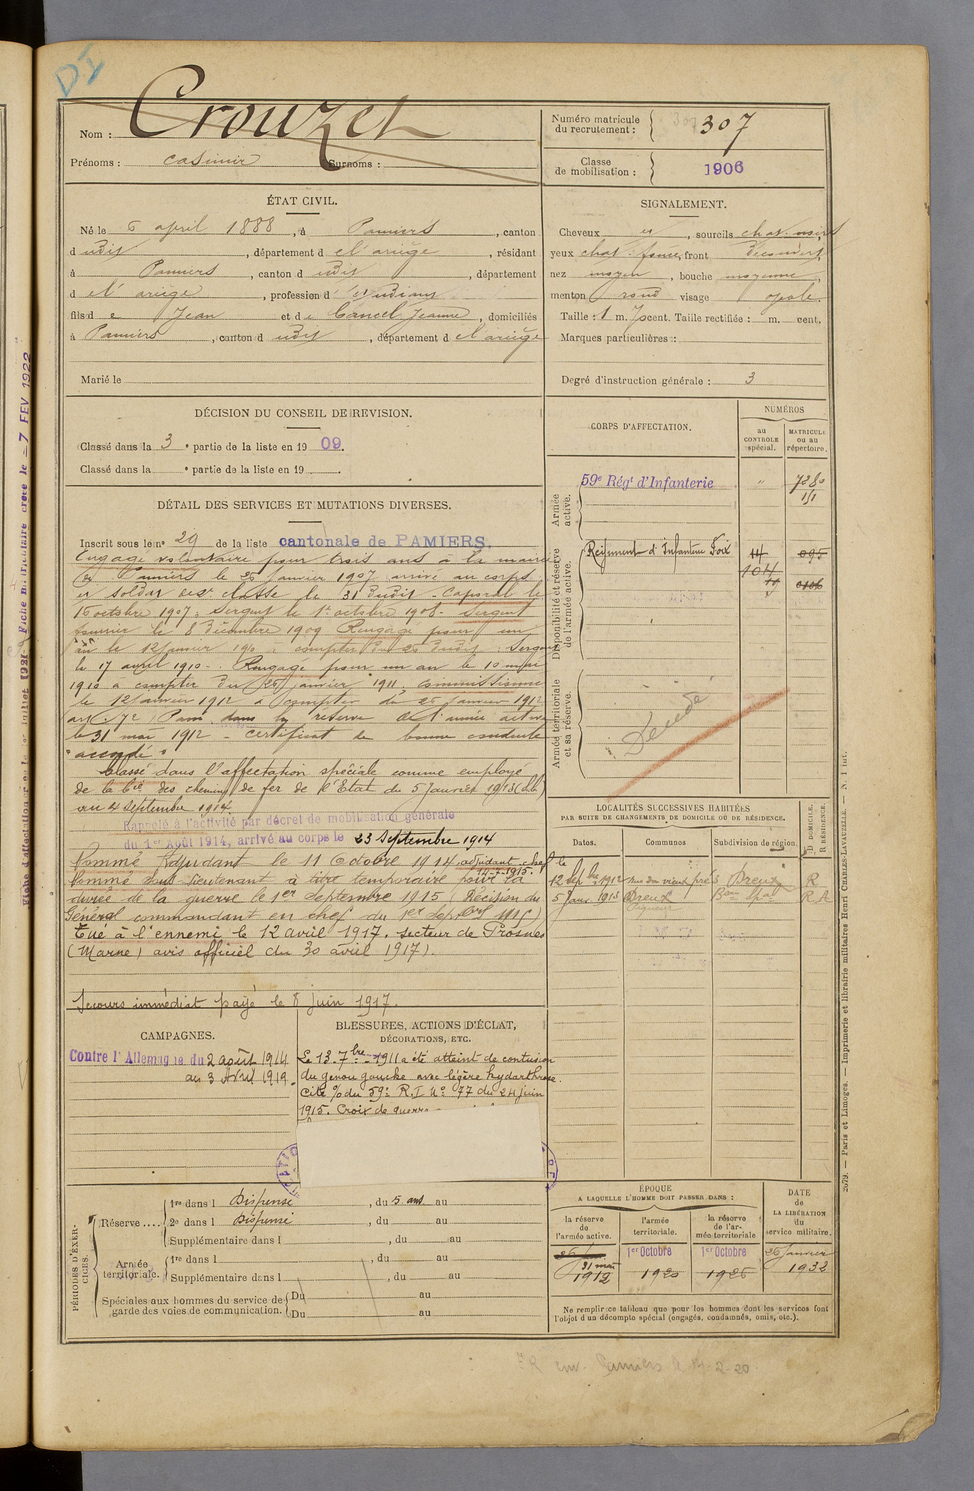 DI
Nom : Crouzet
Numéro matricule du recrutement : 307
Prénoms : Casimir Surnoms :
Classe de mobilisation : 1906
ÉTAT CIVIL.
Né le 6 avril 1888, à Pamiers, canton
dudit, département de l'ariège, résidant
à Pamiers, canton dudit, département
de l'ariège, profession d'étudiant
fils de Jean et de Cancel Jeanne, domiciliés
à Pamiers, canton dudit, département de l'ariège
Marié le
SIGNALEMENT.
Cheveux et, sourcils chat. noirs
yeux chat. foncé, front découvert,
nez moyen, bouche moyenne
menton rond visage ovale.
Taille : 1 m. 70 cent. Taille rectifiée : m. cent.
Marques particulières :
Degré d'instruction générale : 3
DÉCISION DU CONSEIL DE REVISION.
Classé dans la 3e partie de la liste en 1909.
Classé dans la e partie de la liste en 19 .
CORPS D'AFFECTATION.
NUMÉROS
au CONTROLE spécial.
MATRICULE ou au répertoire.
Armée active.
59e Régt d'Infanterie " 7280
1/1
Disponibilité et réserve de l'armée active.
Régiment d'Infanterie Foix
Armée territoriale et sa réserve.
Décédé
DÉTAIL DES SERVICES ET MUTATIONS DIVERSES.
Inscrit sous le no 29 de la liste cantonale de PAMIERS.
Engagé volontaire pour trois ans à la mairie
de Pamiers le 26 janvier 1907 arrivé au corps
et soldat de 2e classe le 31 dudit. Caporal le
16 octobre 1907. Sergent le 1er octobre 1908. Sergent
fourrier le 8 Décembre 1909 Rengagé pour un
an le 12 Janvier 1910 à compter du 26 dudit. Sergent
le 17 avril 1910. Rengagé pour un an le 10 mai
1910 à compter du 26 janvier 1911, commissionné
le 12 janvier 1912 à compter du 26 janvier 1912
art. 72. Passé dans la réserve de l'armée active
le 31 mai 1912 - Certificat de bonne conduite
"accordé"
Classé dans l'affectation spéciale comme employé
de la Cie des chemins de fer de l'Etat du 5 Janvier 1913
au 4 Septembre 1914.
Rappelé à l'activité par décret de mobilisation générale
du 1er Août 1914, arrivé au corps le 23 Septembre 1914
Nommé Adjudant le 11 Octobre 1914, adjudant chef le
Nommé sous-lieutenant à titre temporaire pour la
durée de la guerre le 1er Septembre 1915 (Décision du
Général commandant en chef du 1er Septbre 1915)
Tué à l'ennemi le 12 avril 1917. secteur de Prosnes
(Marne) avis officiel du 30 avril 1917).
Secours immédiat payé le 8 juin 1917.
LOCALITÉS SUCCESSIVES HABITÉES
PAR SUITE DE CHANGEMENTS DE DOMICILE OU DE RÉSIDENCE.
Dates. Communes Subdivision de région. D. DOMICILE. R. RÉSIDENCE.
12 Sepbre 1912 Dreux R
5 Janv. 1913 Dreux R A
CAMPAGNES.
Contre l'Allemagne du 2 août 1914
au 3 Avril 1919.
BLESSURES, ACTIONS D'ÉCLAT,
DÉCORATIONS, ETC.
Le 13 7bre 1911 a été atteint de contusion
du genou gauche avec légère hydarthrose.
Cité % du 59e R.I. No 77 du 24 juin
1915. Croix de guerre
PÉRIODES D'EXERCICES.
Réserve ....
1re dans l Dispensé, du 5 ans au
2e dans l Dispensé, du au
Supplémentaire dans l , du au
Armée territoriale.
1re dans l , du au
Supplémentaire dans l , du au
Spéciales aux hommes du service de garde des voies de communication.
Du au
Du au
ÉPOQUE
A LAQUELLE L'HOMME DOIT PASSER DANS :
la réserve de l'armée active.
l'armée territoriale.
la réserve de l'armée territoriale
DATE de LA LIBÉRATION du service militaire.
31 mai 1912
1er Octobre 1920
1er Octobre 1926
26 Janvier 1932
Ne remplir ce tableau que pour les hommes dont les services font
l'objet d'un décompte spécial (engagés, condamnés, omis, etc.).
2079. — Paris et Limoges. — Imprimerie et librairie militaires Henri CHARLES-LAVAUZELLE. — N. 1 int.